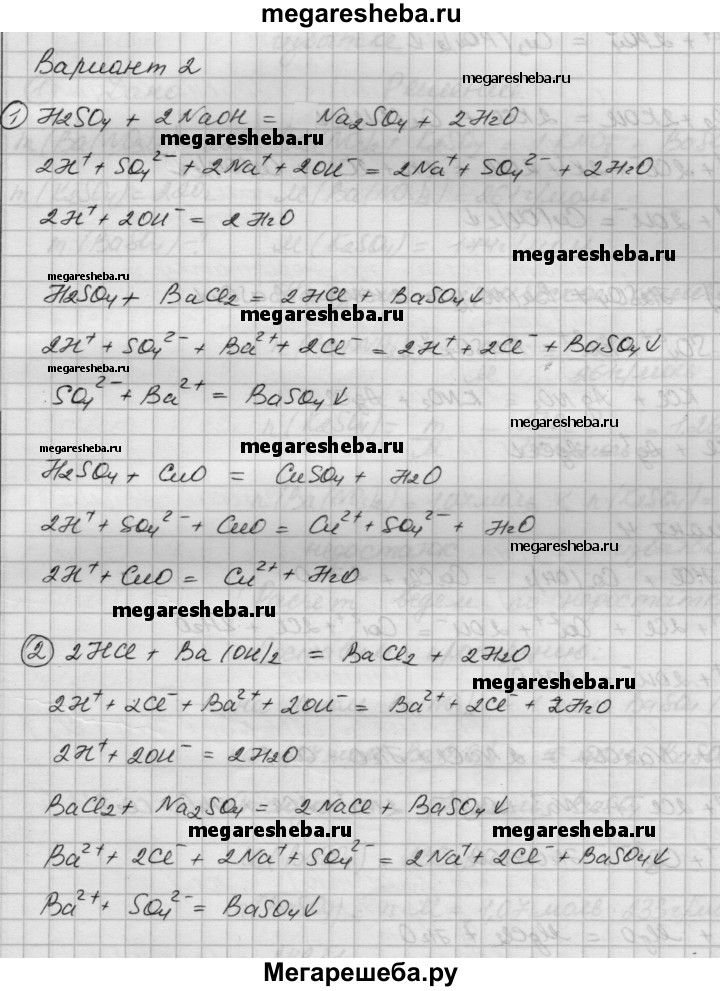 megaresheba.ru
Вариант 2
megaresheba.ru
① H₂SO₄ + 2NaOH = Na₂SO₄ + 2H₂O
megaresheba.ru
2H⁺ + SO₄²⁻ + 2Na⁺ + 2OH⁻ = 2Na⁺ + SO₄²⁻ + 2H₂O
2H⁺ + 2OH⁻ = 2H₂O
megaresheba.ru
megaresheba.ru
H₂SO₄ + BaCl₂ = 2HCl + BaSO₄↓
megaresheba.ru
2H⁺ + SO₄²⁻ + Ba²⁺ + 2Cl⁻ = 2H⁺ + 2Cl⁻ + BaSO₄↓
megaresheba.ru
SO₄²⁻ + Ba²⁺ = BaSO₄↓
megaresheba.ru
megaresheba.ru
H₂SO₄ + CuO = CuSO₄ + H₂O
2H⁺ + SO₄²⁻ + CuO = Cu²⁺ + SO₄²⁻ + H₂O
megaresheba.ru
2H⁺ + CuO = Cu²⁺ + H₂O
megaresheba.ru
② 2HCl + Ba(OH)₂ = BaCl₂ + 2H₂O
megaresheba.ru
2H⁺ + 2Cl⁻ + Ba²⁺ + 2OH⁻ = Ba²⁺ + 2Cl⁻ + 2H₂O
2H⁺ + 2OH⁻ = 2H₂O
BaCl₂ + Na₂SO₄ = 2NaCl + BaSO₄↓
megaresheba.ru megaresheba.ru
Ba²⁺ + 2Cl⁻ + 2Na⁺ + SO₄²⁻ = 2Na⁺ + 2Cl⁻ + BaSO₄↓
Ba²⁺ + SO₄²⁻ = BaSO₄↓
Мегарешеба.ру